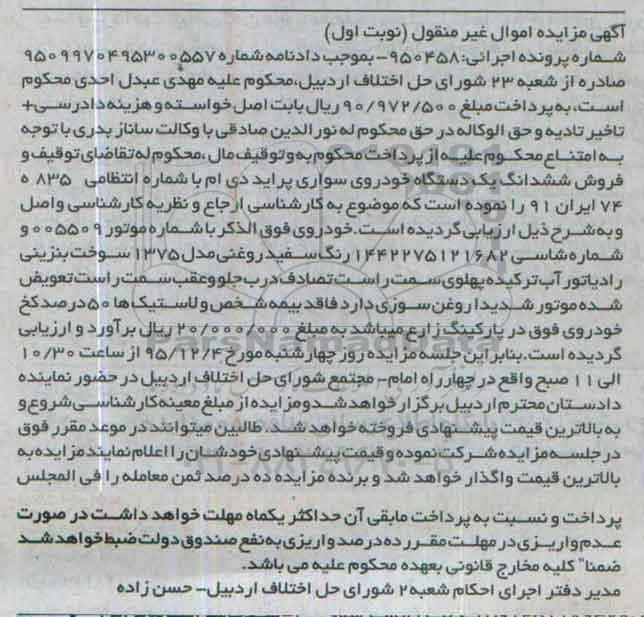 آگهی مزایده اموال غیر منقول (نوبت اول)
شماره پرونده اجرائی: ۹۵۰۴۵۸- بموجب دادنامه شماره ۹۵۰۹۹۷۰۴۹۵۳۰۰۵۵۷
صادره از شعبه ۲۳ شورای حل اختلاف اردبیل، محکوم علیه مهدی عبدل احدی محکوم
است، به پرداخت مبلغ ۹۰/۹۷۲/۵۰۰ ریال بابت اصل خواسته و هزینه دادرسی+
تاخیر تادیه و حق الوکاله در حق محکوم له نورالدین صادقی با وکالت ساناز بدری با توجه
به امتناع محکوم علیه از پرداخت محکوم به و توقیف مال، محکوم له تقاضای توقیف و
فروش ششدانگ یک دستگاه خودروی سواری پراید دی ام با شماره انتظامی ۸۳۵ ه
۷۴ ایران ۹۱ را نموده است که موضوع به کارشناسی ارجاع و نظریه کارشناسی واصل
و به شرح ذیل ارزیابی گردیده است. خودروی فوق الذکر با شماره موتور ۰۰۵۵۰۹ و
شماره شاسی ۱۴۴۲۲۷۵۱۲۱۶۸۲ رنگ سفید روغنی مدل ۱۳۷۵ سوخت بنزینی
رادیاتور آب ترکیده پهلوی سمت راست تصادف درب جلو و عقب سمت راست تعویض
شده موتور شدیدا روغن سوزی دارد فاقد بیمه شخص و لاستیک ها ۵۰ درصد کخ
خودروی فوق در پارکینگ زارع میباشد به مبلغ ۲۰/۰۰۰/۰۰۰ ریال برآورد و ارزیابی
گردیده است. بنابراین جلسه مزایده روز چهارشنبه مورخ ۹۵/۱۲/۴ از ساعت ۱۰/۳۰
الی ۱۱ صبح واقع در چهارراه امام- مجتمع شورای حل اختلاف اردبیل در حضور نماینده
دادستان محترم اردبیل برگزار خواهد شد و مزایده از مبلغ معینه کارشناسی شروع و
به بالاترین قیمت پیشنهادی فروخته خواهد شد. طالبین میتوانند در موعد مقرر فوق
در جلسه مزایده شرکت نموده و قیمت پیشنهادی خودشان را اعلام نمایند مزایده به
بالاترین قیمت واگذار خواهد شد و برنده مزایده ده درصد ثمن معامله را فی المجلس
پرداخت و نسبت به پرداخت مابقی آن حداکثر یکماه مهلت خواهد داشت در صورت
عدم واریزی در مهلت مقرر ده درصد واریزی به نفع صندوق دولت ضبط خواهد شد
ضمنا" کلیه مخارج قانونی بعهده محکوم علیه می باشد.
مدیر دفتر اجرای احکام شعبه ۲ شورای حل اختلاف اردبیل- حسن زاده
ParsNamadData